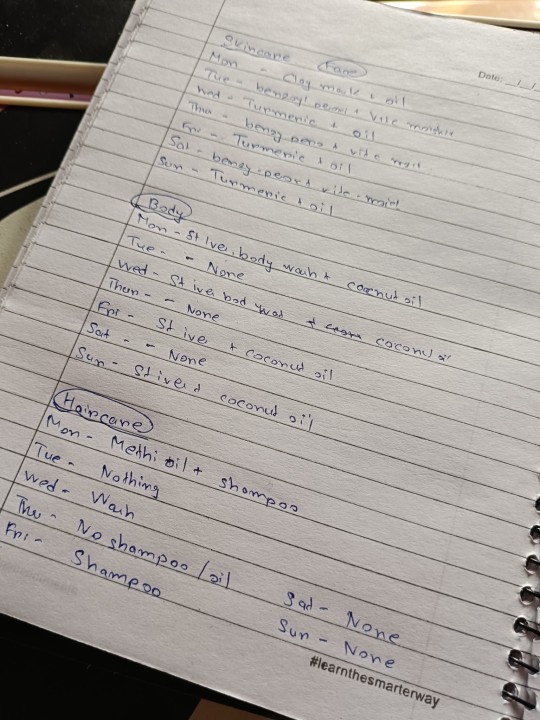 Skincare Face
Date: _/_/
Mon - Clay mask + oil
Tue - benzoyl + vite
Wed - Turmeric + oil
Thu - benzy + vite
Fri - Turmeric + oil
Sat - benzy + vite
Sun - Turmeric + oil
Body
Mon - St Ives body wash + coconut oil
Tue - - None
Wed - St ive bod + coconut oil
Thur - - None
Fri - St ives + coconut oil
Sat - - None
Sun - St ives + coconut oil
Haircare
Mon - Methi oil + shampoo
Tue - Nothing
Wed - Wash
Thu - No shampoo / oil
Fri - Shampoo
Sat - None
Sun - None
#learnthesmarterway